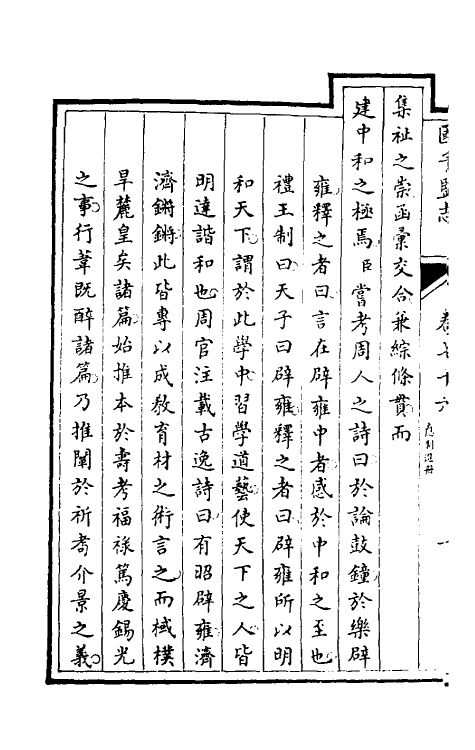 集祉之崇函彙交合兼綜條貫而
建中和之極焉臣嘗考周人之詩曰於論鼓鐘於樂辟
雍釋之者曰言在辟雍中者感於中和之至也
禮王制曰天子曰辟雍釋之者曰辟雍所以明
和天下謂於此學中習學道藝使天下之人皆
明達諧和也周官注載古逸詩曰有昭辟雍濟
濟鏘鏘此皆專以成教育材之術言之而棫樸
旱麓皇矣諸篇始推本於壽考福祿篤慶錫光
之事行葦既醉諸篇乃推闡於祈耈介景之義